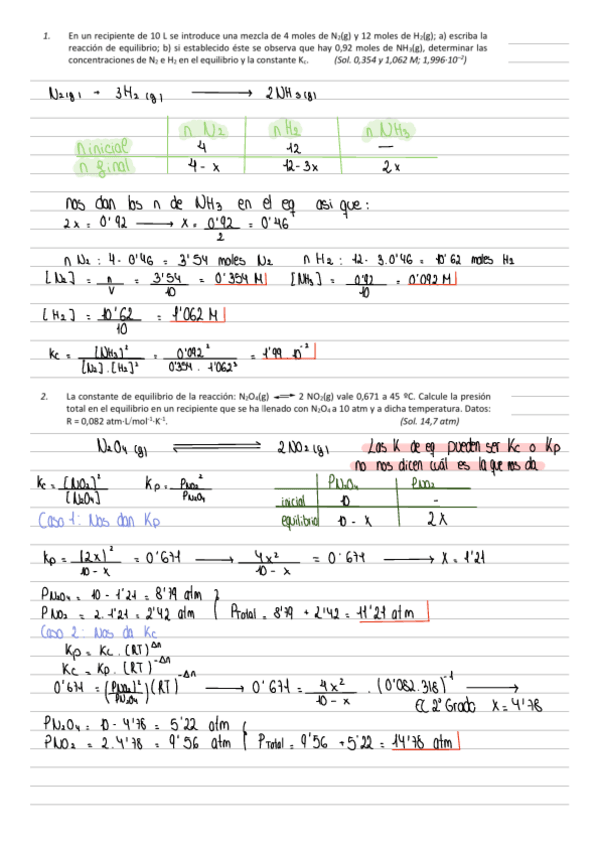 1. En un recipiente de 10 L se introduce una mezcla de 4 moles de N₂(g) y 12 moles de H₂(g); a) escriba la
reacción de equilibrio; b) si establecido éste se observa que hay 0,92 moles de NH₃(g), determinar las
concentraciones de N₂ e H₂ en el equilibrio y la constante Kc. (Sol. 0,354 y 1,062 M; 1,996·10⁻²)
N₂(g) + 3H₂(g) ⟶ 2NH₃(g)
n N₂ n H₂ n NH₃
n inicial 4 12 —
n final 4-x 12-3x 2x
nos dan los n de NH₃ en el eq asi que:
2x = 0'92 ⟶ x = 0'92/2 = 0'46
n N₂ : 4 - 0'46 = 3'54 moles N₂ n H₂ : 12 - 3.0'46 = 10'62 moles H₂
[N₂] = n/V = 3'54/10 = 0'354 M [NH₃] = 0'92/10 = 0'092 M
[H₂] = 10'62/10 = 1'062 M
Kc = [NH₃]²/[N₂].[H₂]³ = 0'092²/0'354 . 1'062³ = 1'99 · 10⁻²
2. La constante de equilibrio de la reacción: N₂O₄(g) ⇌ 2 NO₂(g) vale 0,671 a 45 ºC. Calcule la presión
total en el equilibrio en un recipiente que se ha llenado con N₂O₄ a 10 atm y a dicha temperatura. Datos:
R = 0,082 atm·L/mol⁻¹·K⁻¹. (Sol. 14,7 atm)
N₂O₄ (g) ⇌ 2NO₂ (g) Las K de eq pueden ser Kc o Kp
no nos dicen cuál es la que nos da
Kc = [NO₂]²/[N₂O₄] Kp = PNO₂²/PN₂O₄ PN₂O₄ PNO₂
inicial 10 -
Caso 1: Nos dan Kp equilibrio 10 - x 2x
Kp = (2x)²/10 - x = 0'671 ⟶ 4x²/10 - x = 0'671 ⟶ x = 1'21
PN₂O₄ = 10 - 1'21 = 8'79 atm
PNO₂ = 2 . 1'21 = 2'42 atm PTotal = 8'79 + 2'42 = 11'21 atm
Caso 2: Nos da Kc
Kp = Kc . (RT)^Δn
Kc = Kp . (RT)^-Δn
0'671 = ((PNO₂)²/PN₂O₄)(RT)^-Δn ⟶ 0'671 = 4x²/10 - x . (0'082.318)⁻¹ ⟶
EC 2º Grado x = 4'78
PN₂O₄ = 10 - 4'78 = 5'22 atm
PNO₂ = 2.4'78 = 9'56 atm PTotal = 9'56 + 5'22 = 14'78 atm